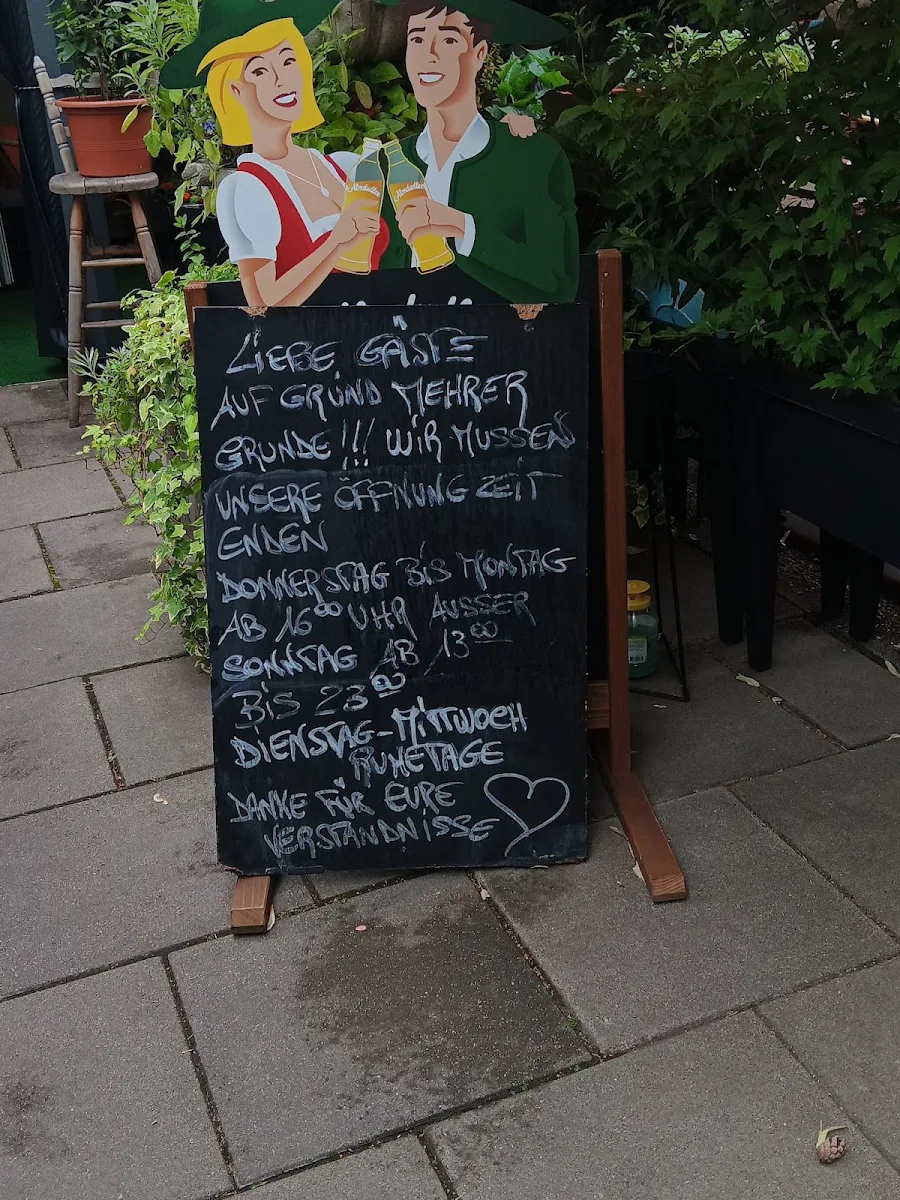 Almdudler
Almdudler
LIEBE GÄSTE
AUF GRUND MEHRER
GRUNDE !!! WIR MUSSEN
UNSERE ÖFFNUNG ZEIT
ENDEN
DONNERSTAG BIS MONTAG
AB 16⁰⁰ UHR AUSSER
SONNTAG AB 13⁰⁰
BIS 23⁰⁰
DIENSTAG-MITTWOCH
RUHETAGE
DANKE FÜR EURE
VERSTANDNISSE